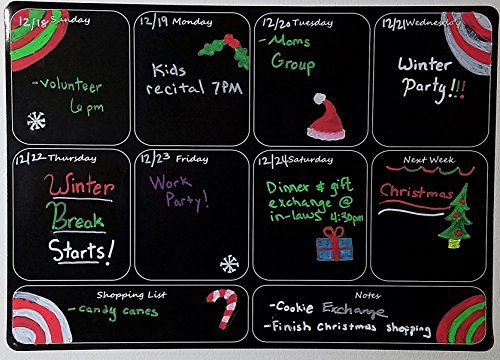 12/18 Sunday
-Volunteer
6 pm
12/19 Monday
Kids
recital 7PM
12/20 Tuesday
-Moms
Group
12/21 Wednesday
Winter
Party!!!
12/22 Thursday
Winter
Break
Starts!
12/23 Friday
Work
Party!
12/24 Saturday
Dinner & gift
exchange @
in-laws 4:30pm
Next Week
Christmas
Shopping List
-candy canes
Notes
-Cookie Exchange
-Finish Christmas shopping